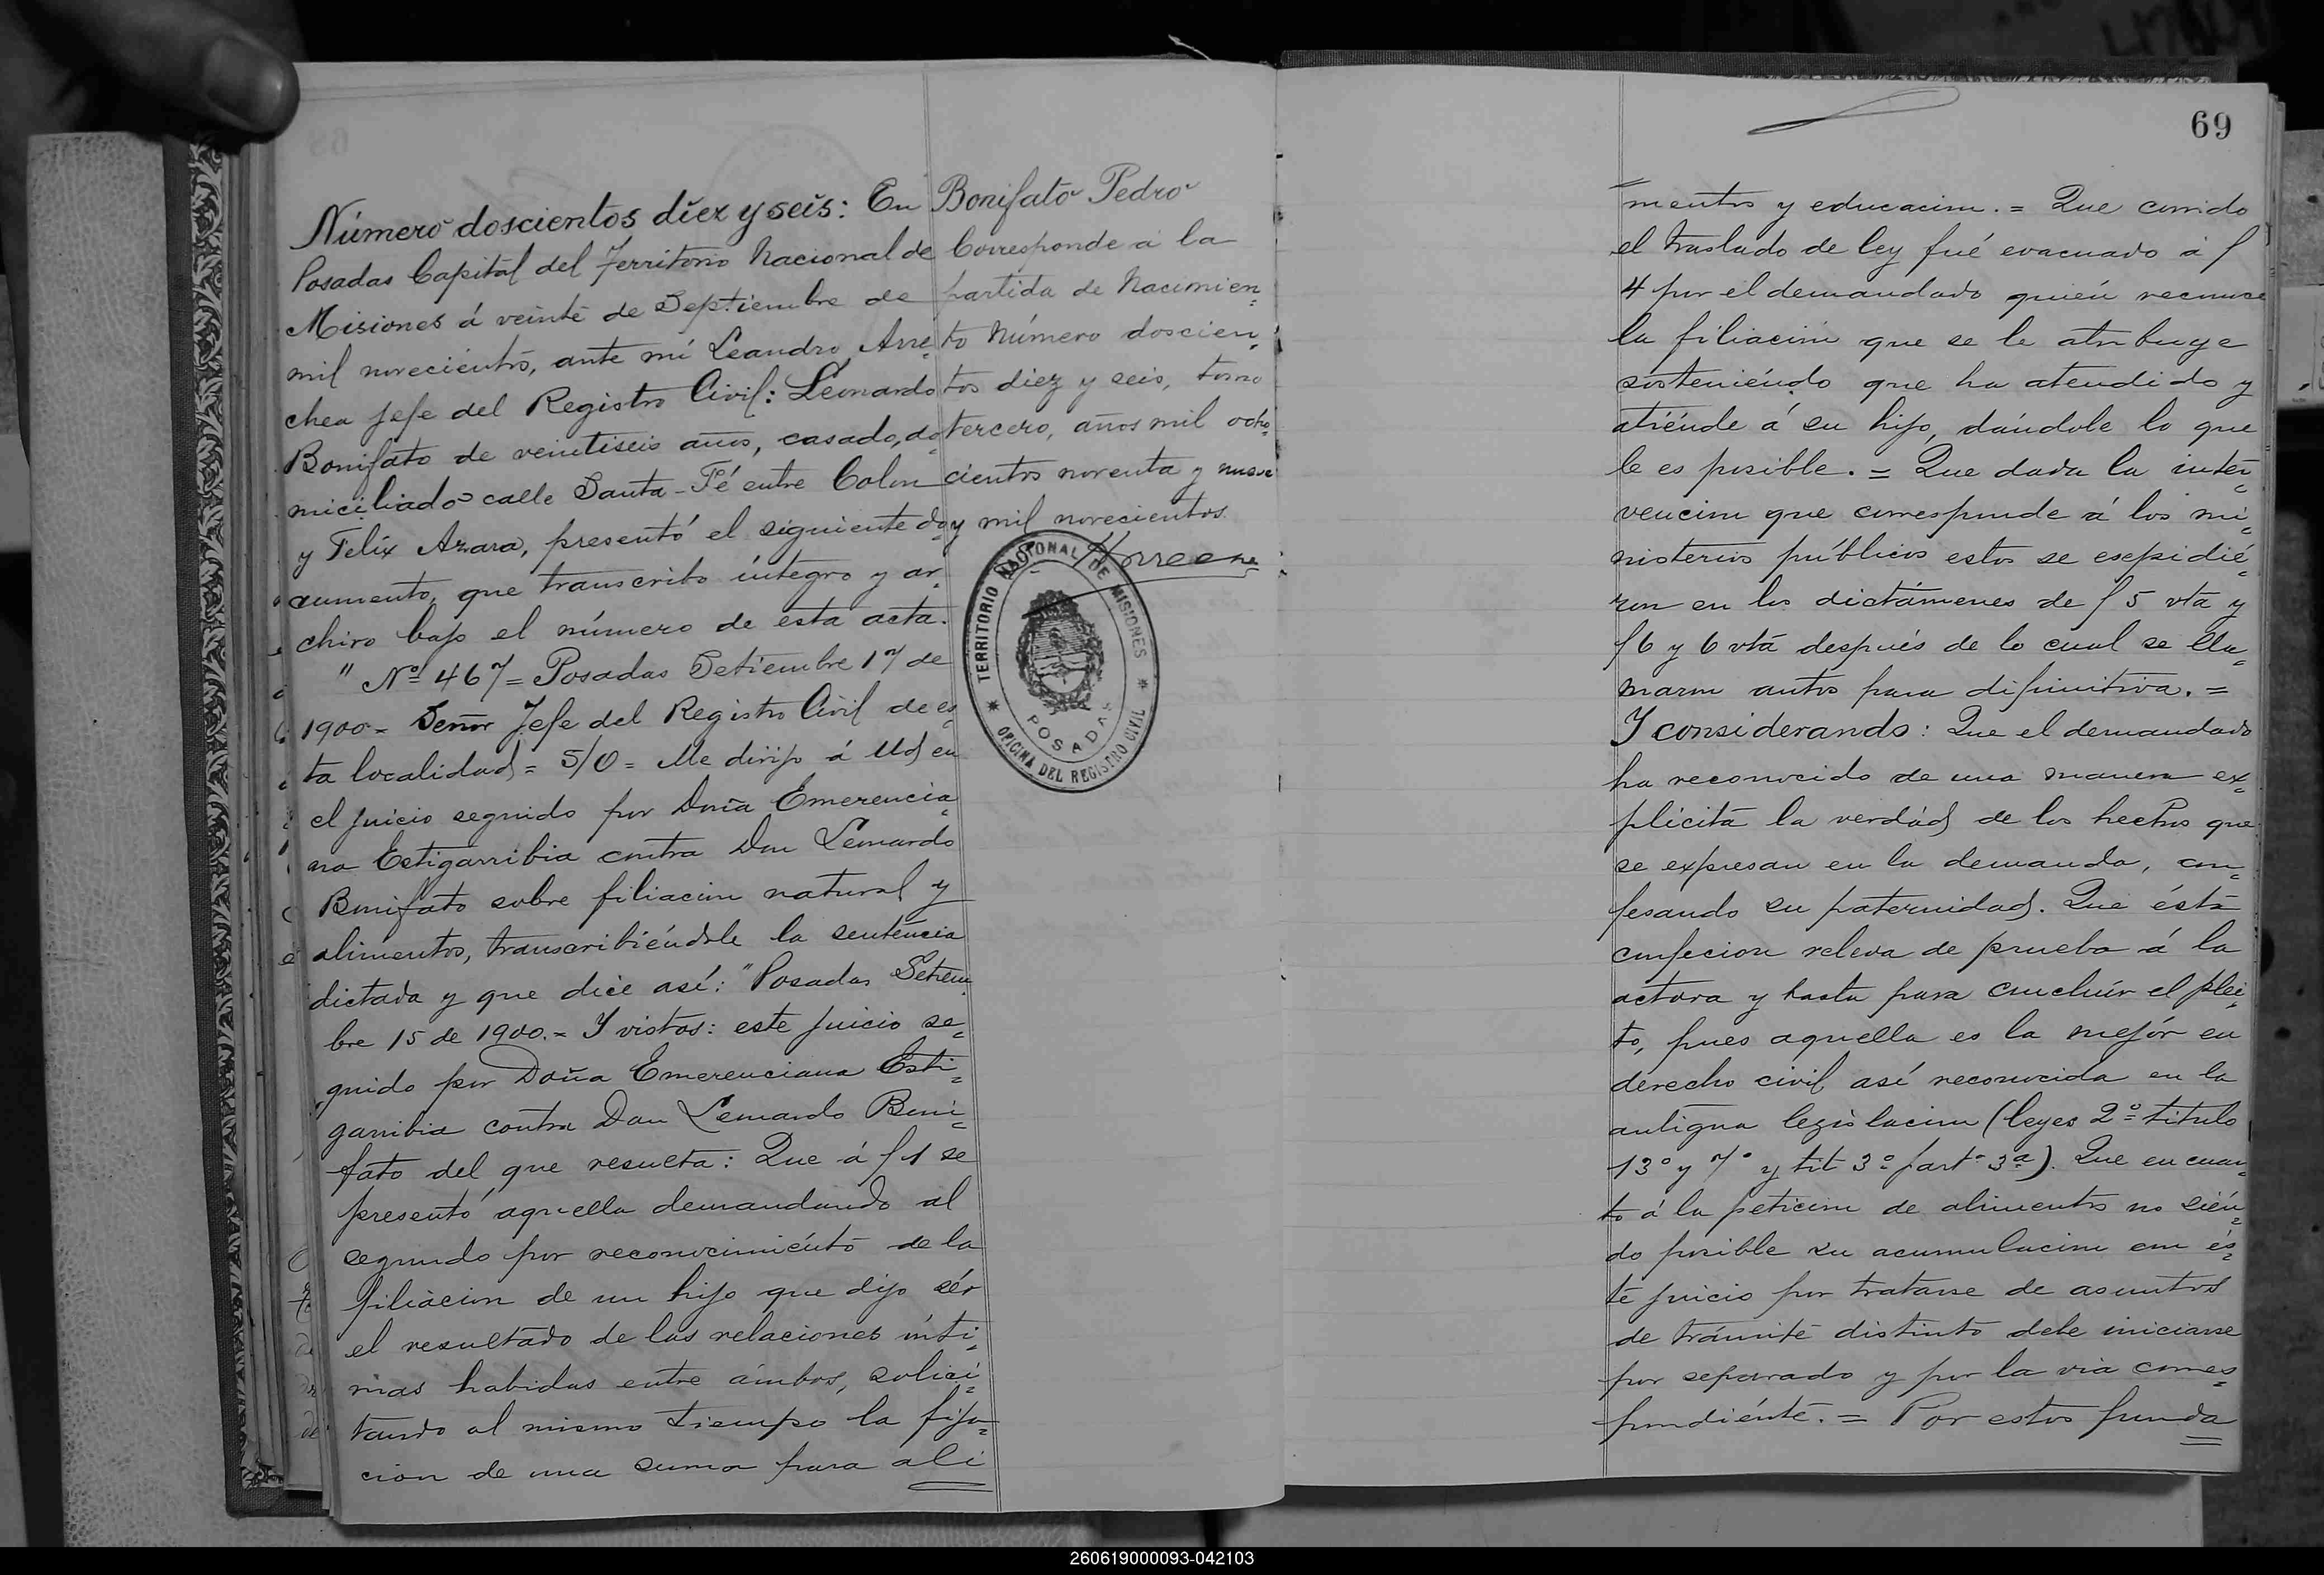 Número doscientos diez y seis: En
Posadas Capital del Territorio Nacional de
Misiones á veinte de Septiembre de
mil novecientos, ante mi Leandro Arre-
chea Jefe del Registro Civil: Leonardo
Bonifato de veintiseis años, casado, do
miciliado calle Santa-Fé entre Colon
y Felix Azara, presentó el siguiente do-
cumento, que transcribo íntegro y ar-
chivo bajo el número de esta acta.
" Nº 467 = Posadas Setiembre 17 de
1900 = Señor Jefe del Registro Civil de es-
ta localidad = S/O = Me dirijo á Ud en
el juicio seguido por Doña Emerencia-
na Estigarribia contra Don Leonardo
Bonifato sobre filiacion natural y
alimentos, transcribiéndole la sentencia
dictada y que dice así: "Posadas Setiem-
bre 15 de 1900. = Y vistos: este juicio se-
guido por Doña Emerenciana Esti-
garribia contra Don Leonardo Boni-
fato del que resulta: Que á f 1 se
presentó aquella demandando al
segundo por reconocimiento de la
filiacion de un hijo que dijo sér
el resultado de las relaciones ínti-
mas habidas entre ámbos, solici-
tando al mismo tiempo la fija-
cion de una suma para ali
Bonifato Pedro
Corresponde á la
partida de Nacimien-
to Número doscien-
tos diez y seis, tomo
tercero, años mil ocho
cientos noventa y nueve
y mil novecientos.
TERRITORIO NACIONAL DE MISIONES
OFICINA DEL REGISTRO CIVIL
POSADAS
69
mentos y educacion. = Que corrido
el traslado de ley fué evacuado á f
4 por el demandado quién reconoce
la filiacion que se le atribuye
sosteniéndo que ha atendido y
atiénde á su hijo, dándole lo que
le es posible. = Que dada la inter-
vencion que corresponde á los mi-
nisterios públicos estos se esepidié-
ron en los dictámenes de f 5 vta y
f 6 y 6 vtá después de lo cual se lla-
maron autos para difinitiva. =
Y considerando: Que el demandado
ha reconocido de una manera ex-
plicita la verdád de los hechos que
se expresan en la demanda, con-
fesando su paternidad. Que ésta
confecion releva de prueba á la
actora y basta para concluír el plei-
to, pues aquella es la mejór en
derecho civil así reconocida en la
antigua legislacion (leyes 2º titulo
13º y 7º y tit 3º parte 3ª). Que en cuan-
to á la peticion de alimentos no sién-
do posible su acumulacion con és-
te juicio por tratarse de asuntos
de trámite distinto debe iniciarse
por separado y por la via corres-
pondiénte. = Por estos funda
260619000093-042103